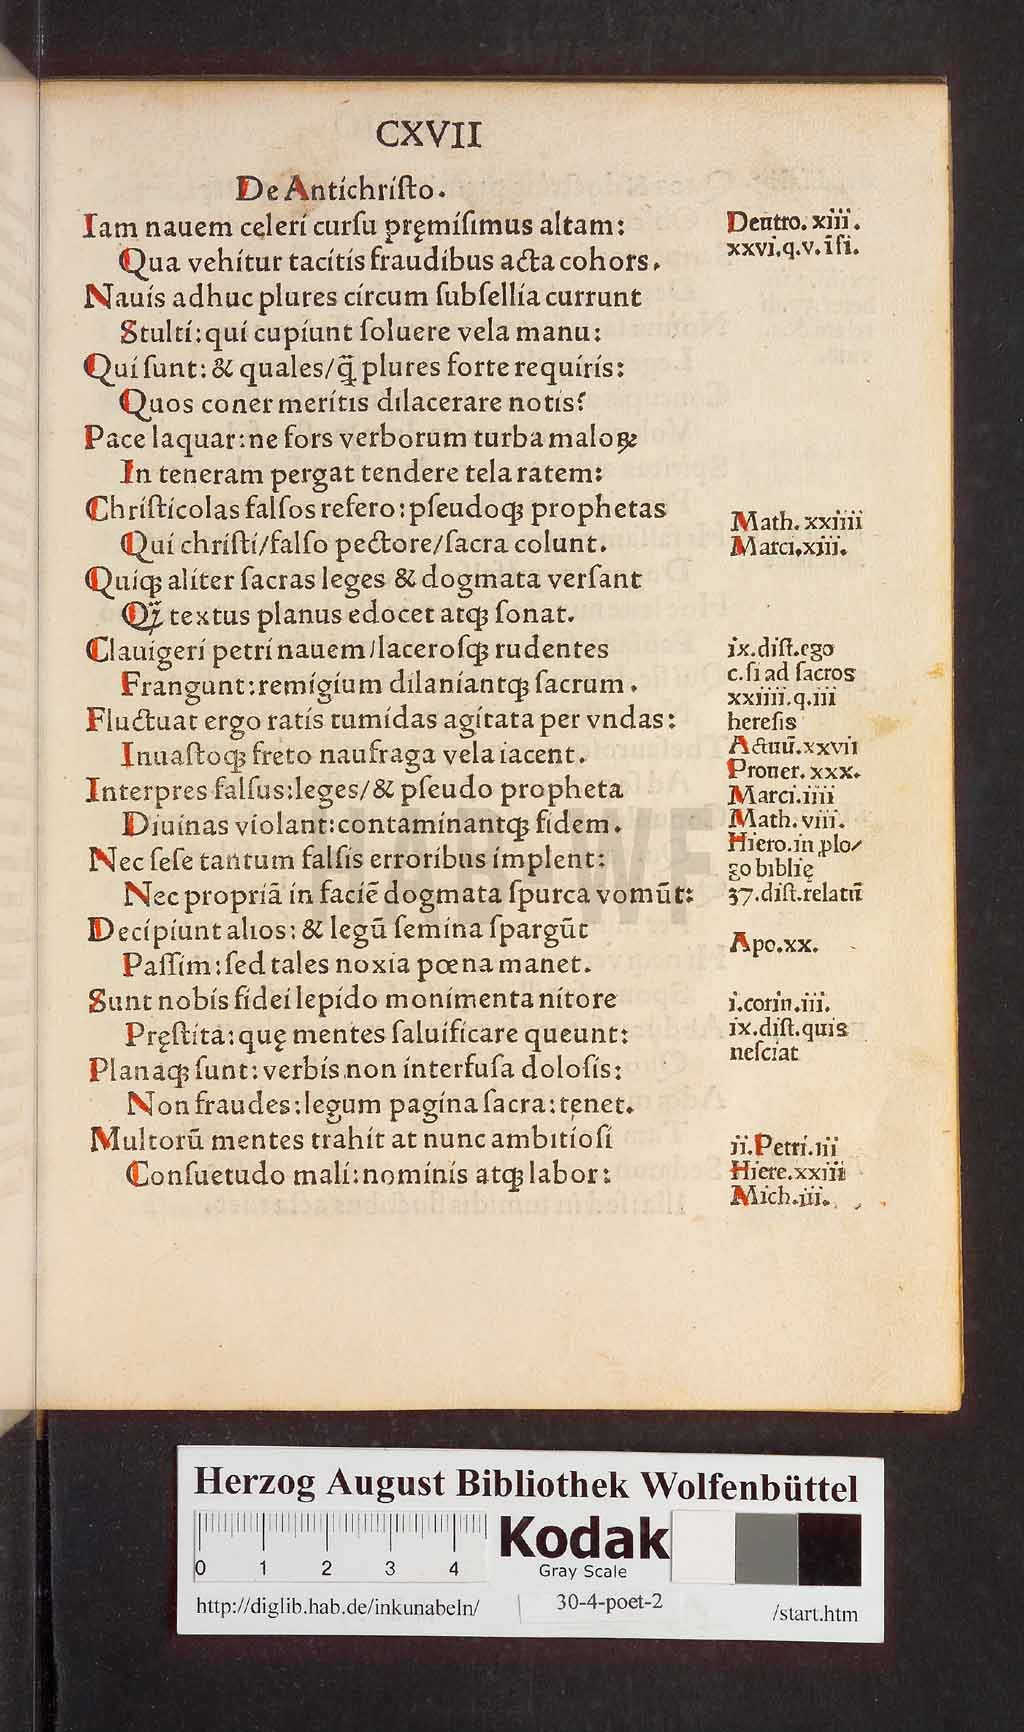 CXVII
De Antichriſto.
Iam nauem celeri curſu pręmiſimus altam:
Qua vehitur tacitis fraudibus acta cohors.
Nauis adhuc plures circum ſubſellia currunt
Stulti: qui cupiunt ſoluere vela manu:
Qui ſunt: & quales/ q̃ plures forte requiris:
Quos coner meritis dilacerare notis?
Pace laquar: ne fors verborum turba maloꝝ
In teneram pergat tendere tela ratem:
Chriſticolas falſos refero: pſeudoqꝫ prophetas
Qui chriſti/ falſo pectore/ ſacra colunt.
Quiqꝫ aliter ſacras leges & dogmata verſant
Qꝫ̃ textus planus edocet atqꝫ ſonat.
Clauigeri petri nauem/ laceroſqꝫ rudentes
Frangunt: remigium dilaniantqꝫ ſacrum.
Fluctuat ergo ratis tumidas agitata per vndas:
Inuaſtoqꝫ freto naufraga vela iacent.
Interpres falſus: leges/ & pſeudo propheta
Diuinas violant: contaminantqꝫ fidem.
Nec ſeſe tantum falſis erroribus implent:
Nec propriã in faciẽ dogmata ſpurca vomũt:
Decipiunt alios: & legũ ſemina ſpargũt
Paſſim: ſed tales noxia pœna manet.
Sunt nobis fidei lepido monimenta nitore
Pręſtita: quę mentes ſaluificare queunt:
Planaqꝫ ſunt: verbis non interfuſa doloſis:
Non fraudes: legum pagina ſacra: tenet.
Multorũ mentes trahit at nunc ambitioſi
Conſuetudo mali: nominis atqꝫ labor:
Deutro. xiii.
xxvi.q.v. ĩſi.
Math. xxiiii
Marci.xiii.
ix.diſt.ego
c.ſi ad ſacros
xxiiii.q.iii
hereſis
Actuũ.xxvii
Prouer. xxx.
Marci.iiii
Math. viii.
Hiero.in ꝓlo/
go biblię
37.diſt.relatũ
Apo.xx.
i.corin.iii.
ix.diſt.quis
neſciat
ii.Petri.iii
Hiere.xxiii
Mich.iii.
HAB WF
Herzog August Bibliothek Wolfenbüttel
0 1 2 3 4
Kodak
Gray Scale
http://diglib.hab.de/inkunabeln/
30-4-poet-2
/start.htm